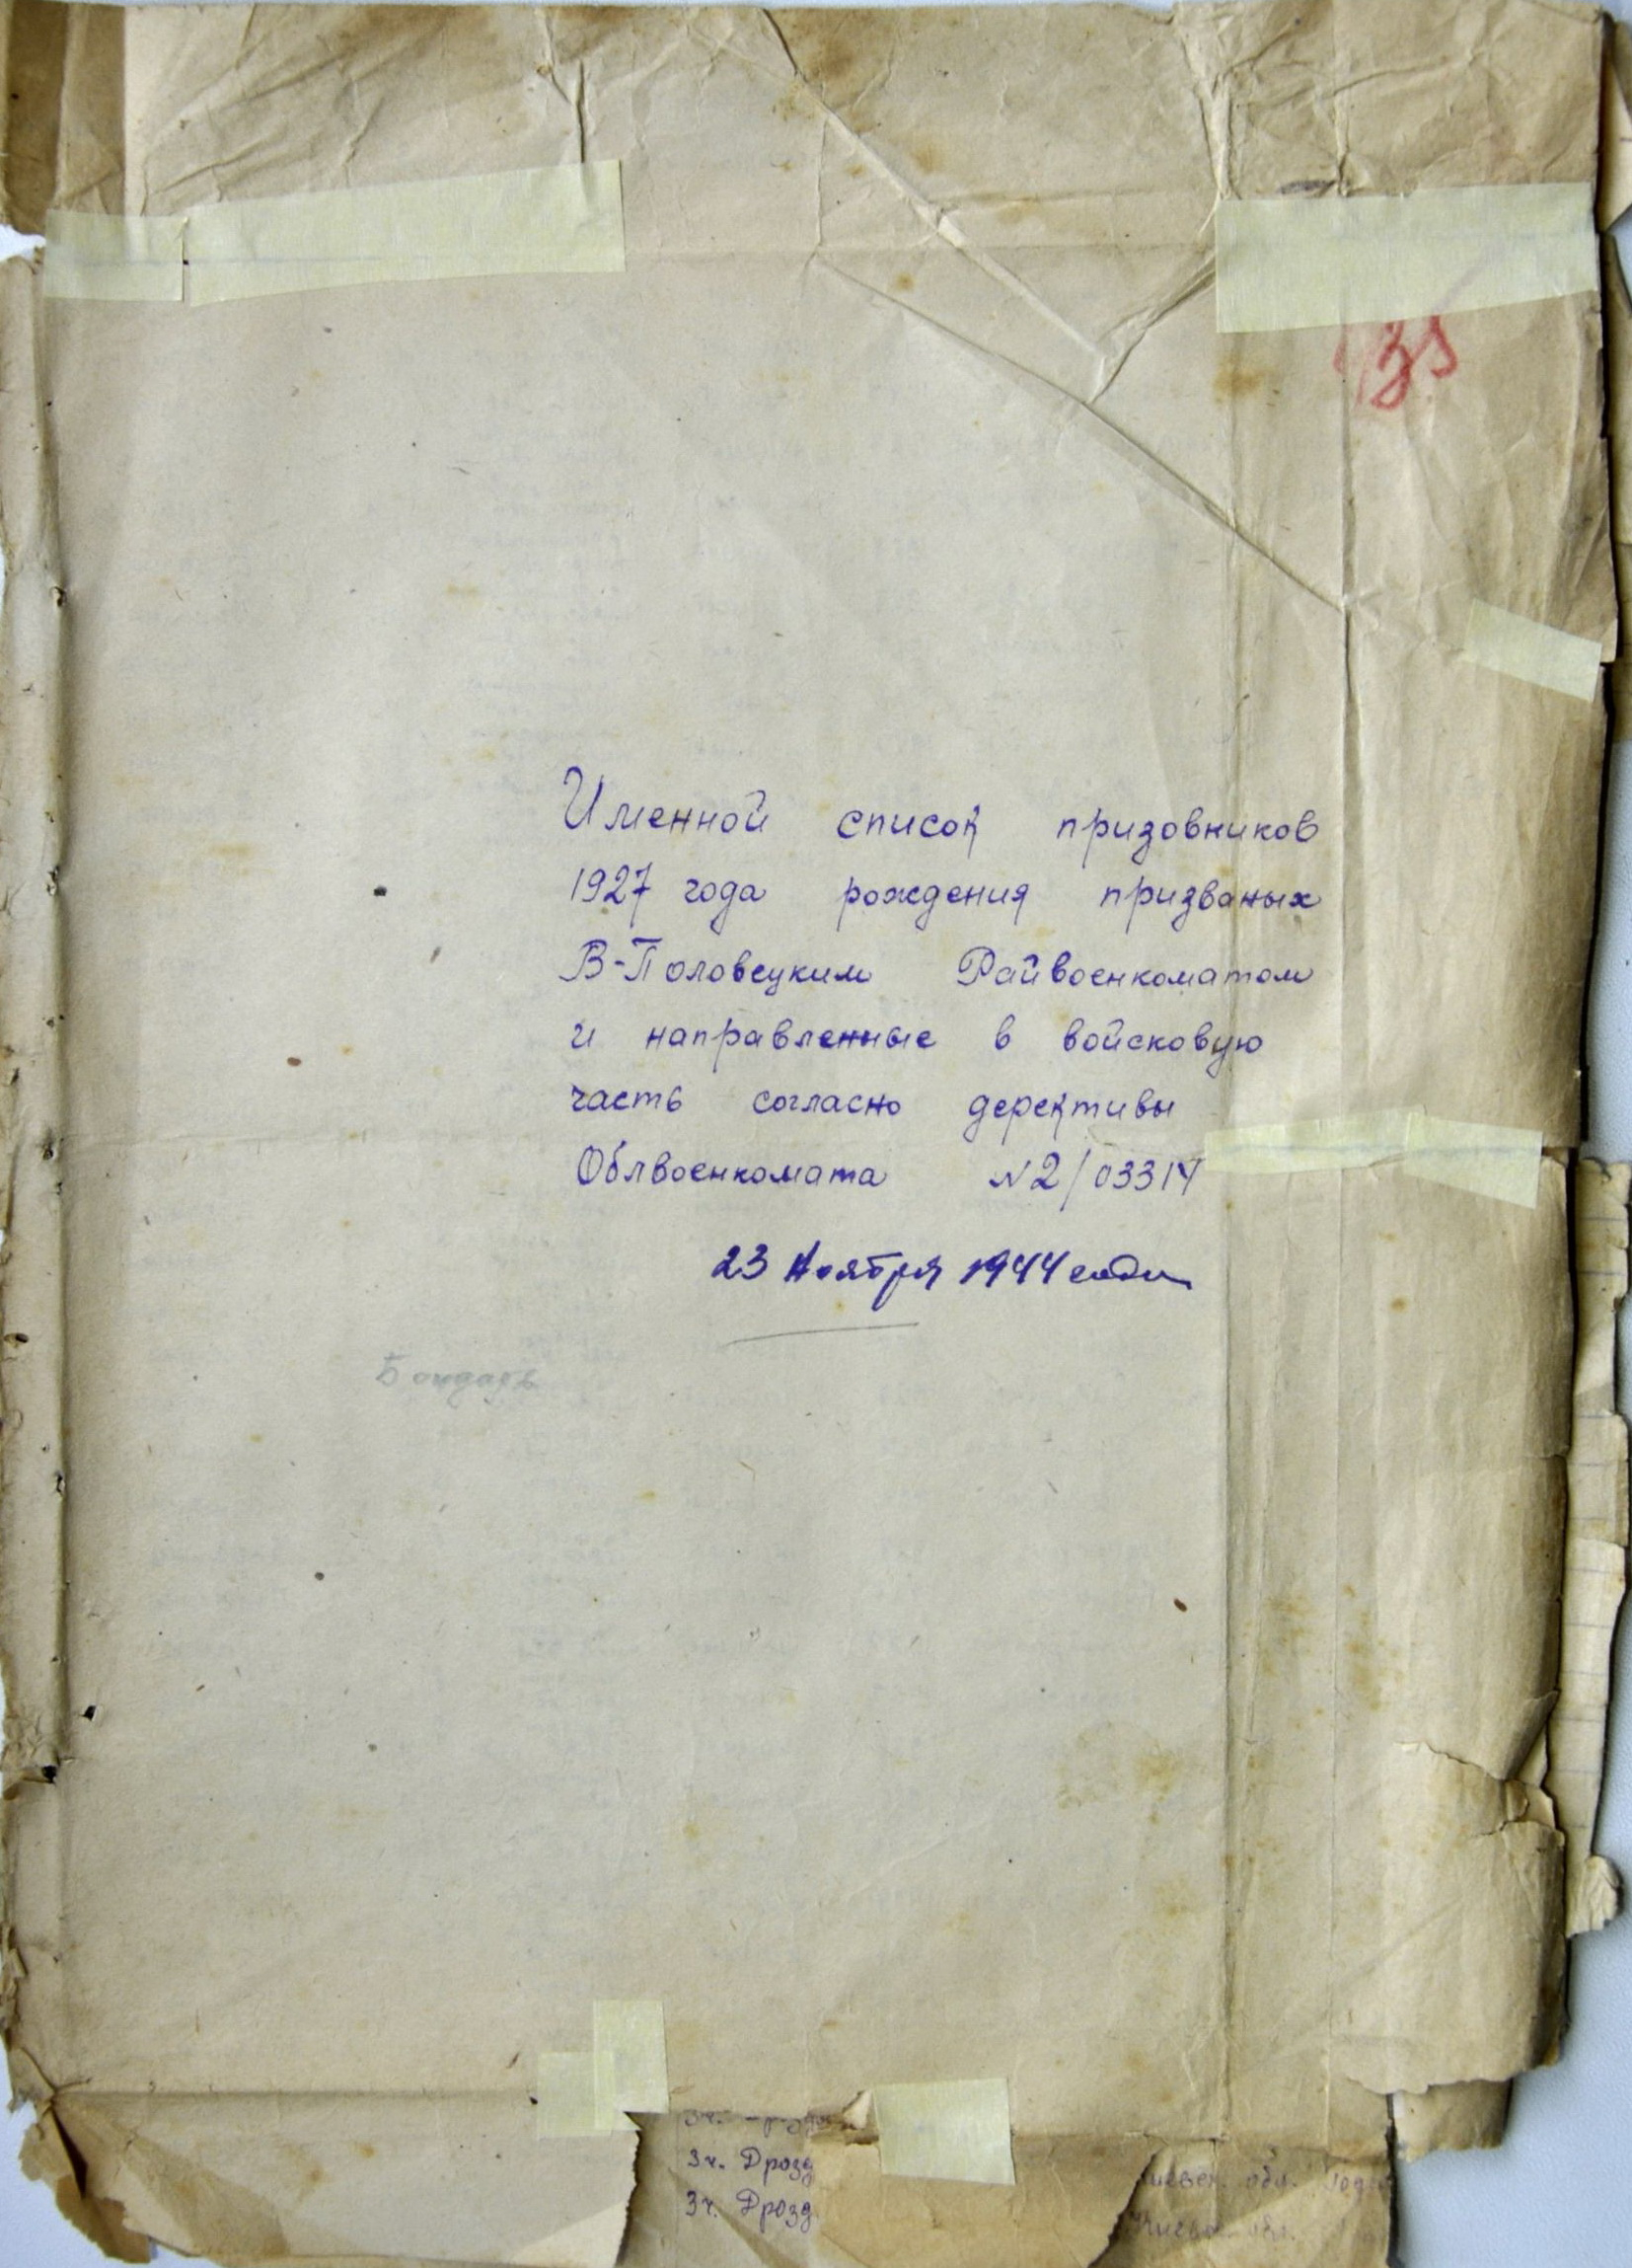 Именной список призовников
1927 года рождения призваных
В-Половецким Райвоенкоматом
и направленные в войсковую
часть согласно дерективы
Облвоенкомата N2/03314
23 Ноября 1944 года
Бондарь
3 ч. Дрозд
3 ч. Дрозд